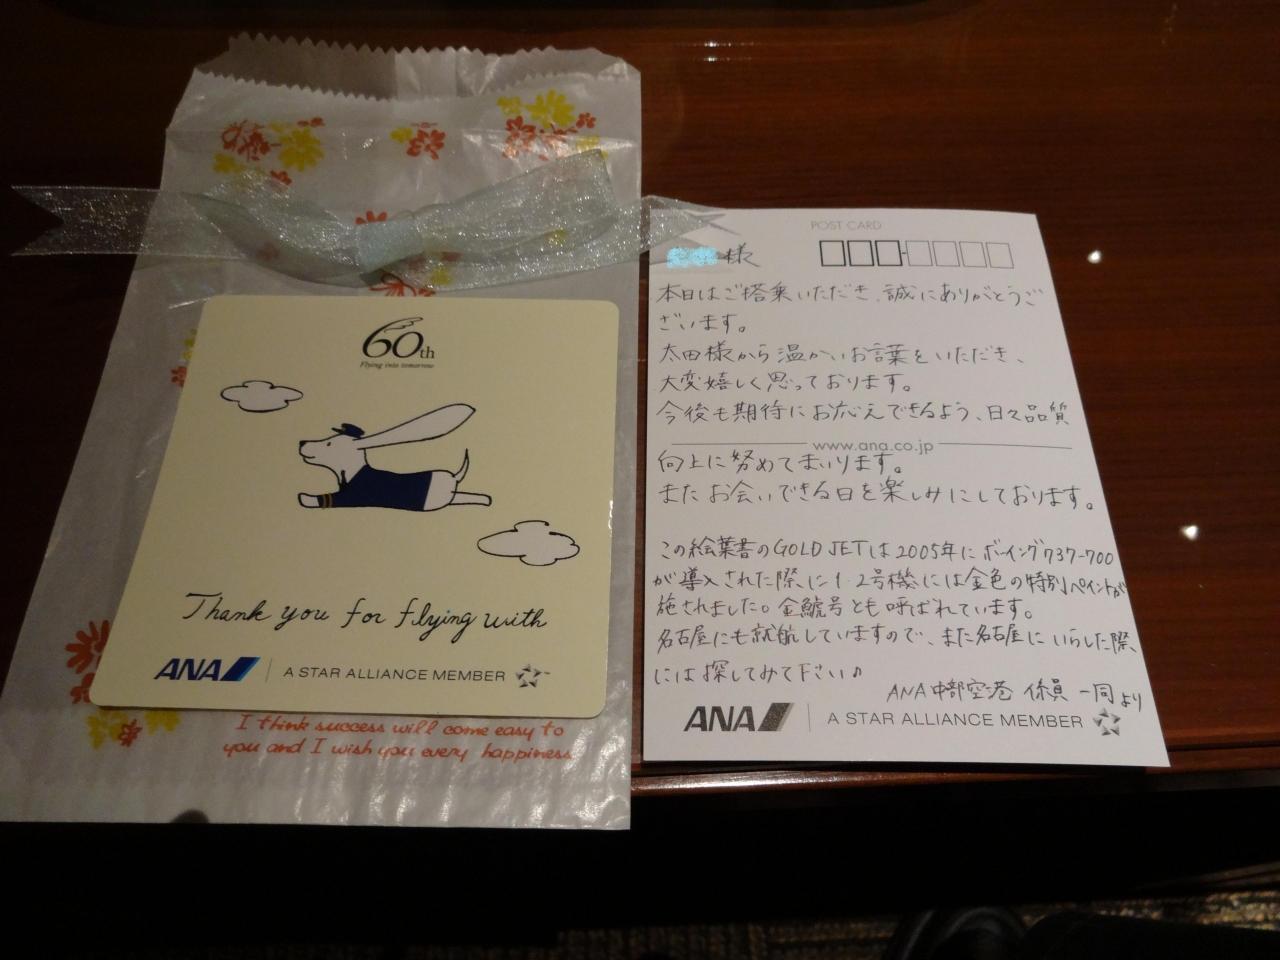 60th
Flying into tomorrow
Thank you for flying with
ANA
A STAR ALLIANCE MEMBER
I think success will come easy to
you and I wish you every happiness.
POST CARD
様
本日はご搭乗いただき、誠にありがとうご
ざいます。
太田様から温かいお言葉をいただき、
大変嬉しく思っております。
今後も期待にお応えできるよう、日々品質
www.ana.co.jp
向上に努めてまいります。
またお会いできる日を楽しみにしております。
この絵葉書のGOLD JETは2005年にボーイング737-700
が導入された際に1・2号機には金色の特別ペイントが
施されました。金鯱号とも呼ばれています。
名古屋にも就航していますので、また名古屋にいらした際
には探してみて下さい♪
ANA中部空港 係員一同より
ANA
A STAR ALLIANCE MEMBER